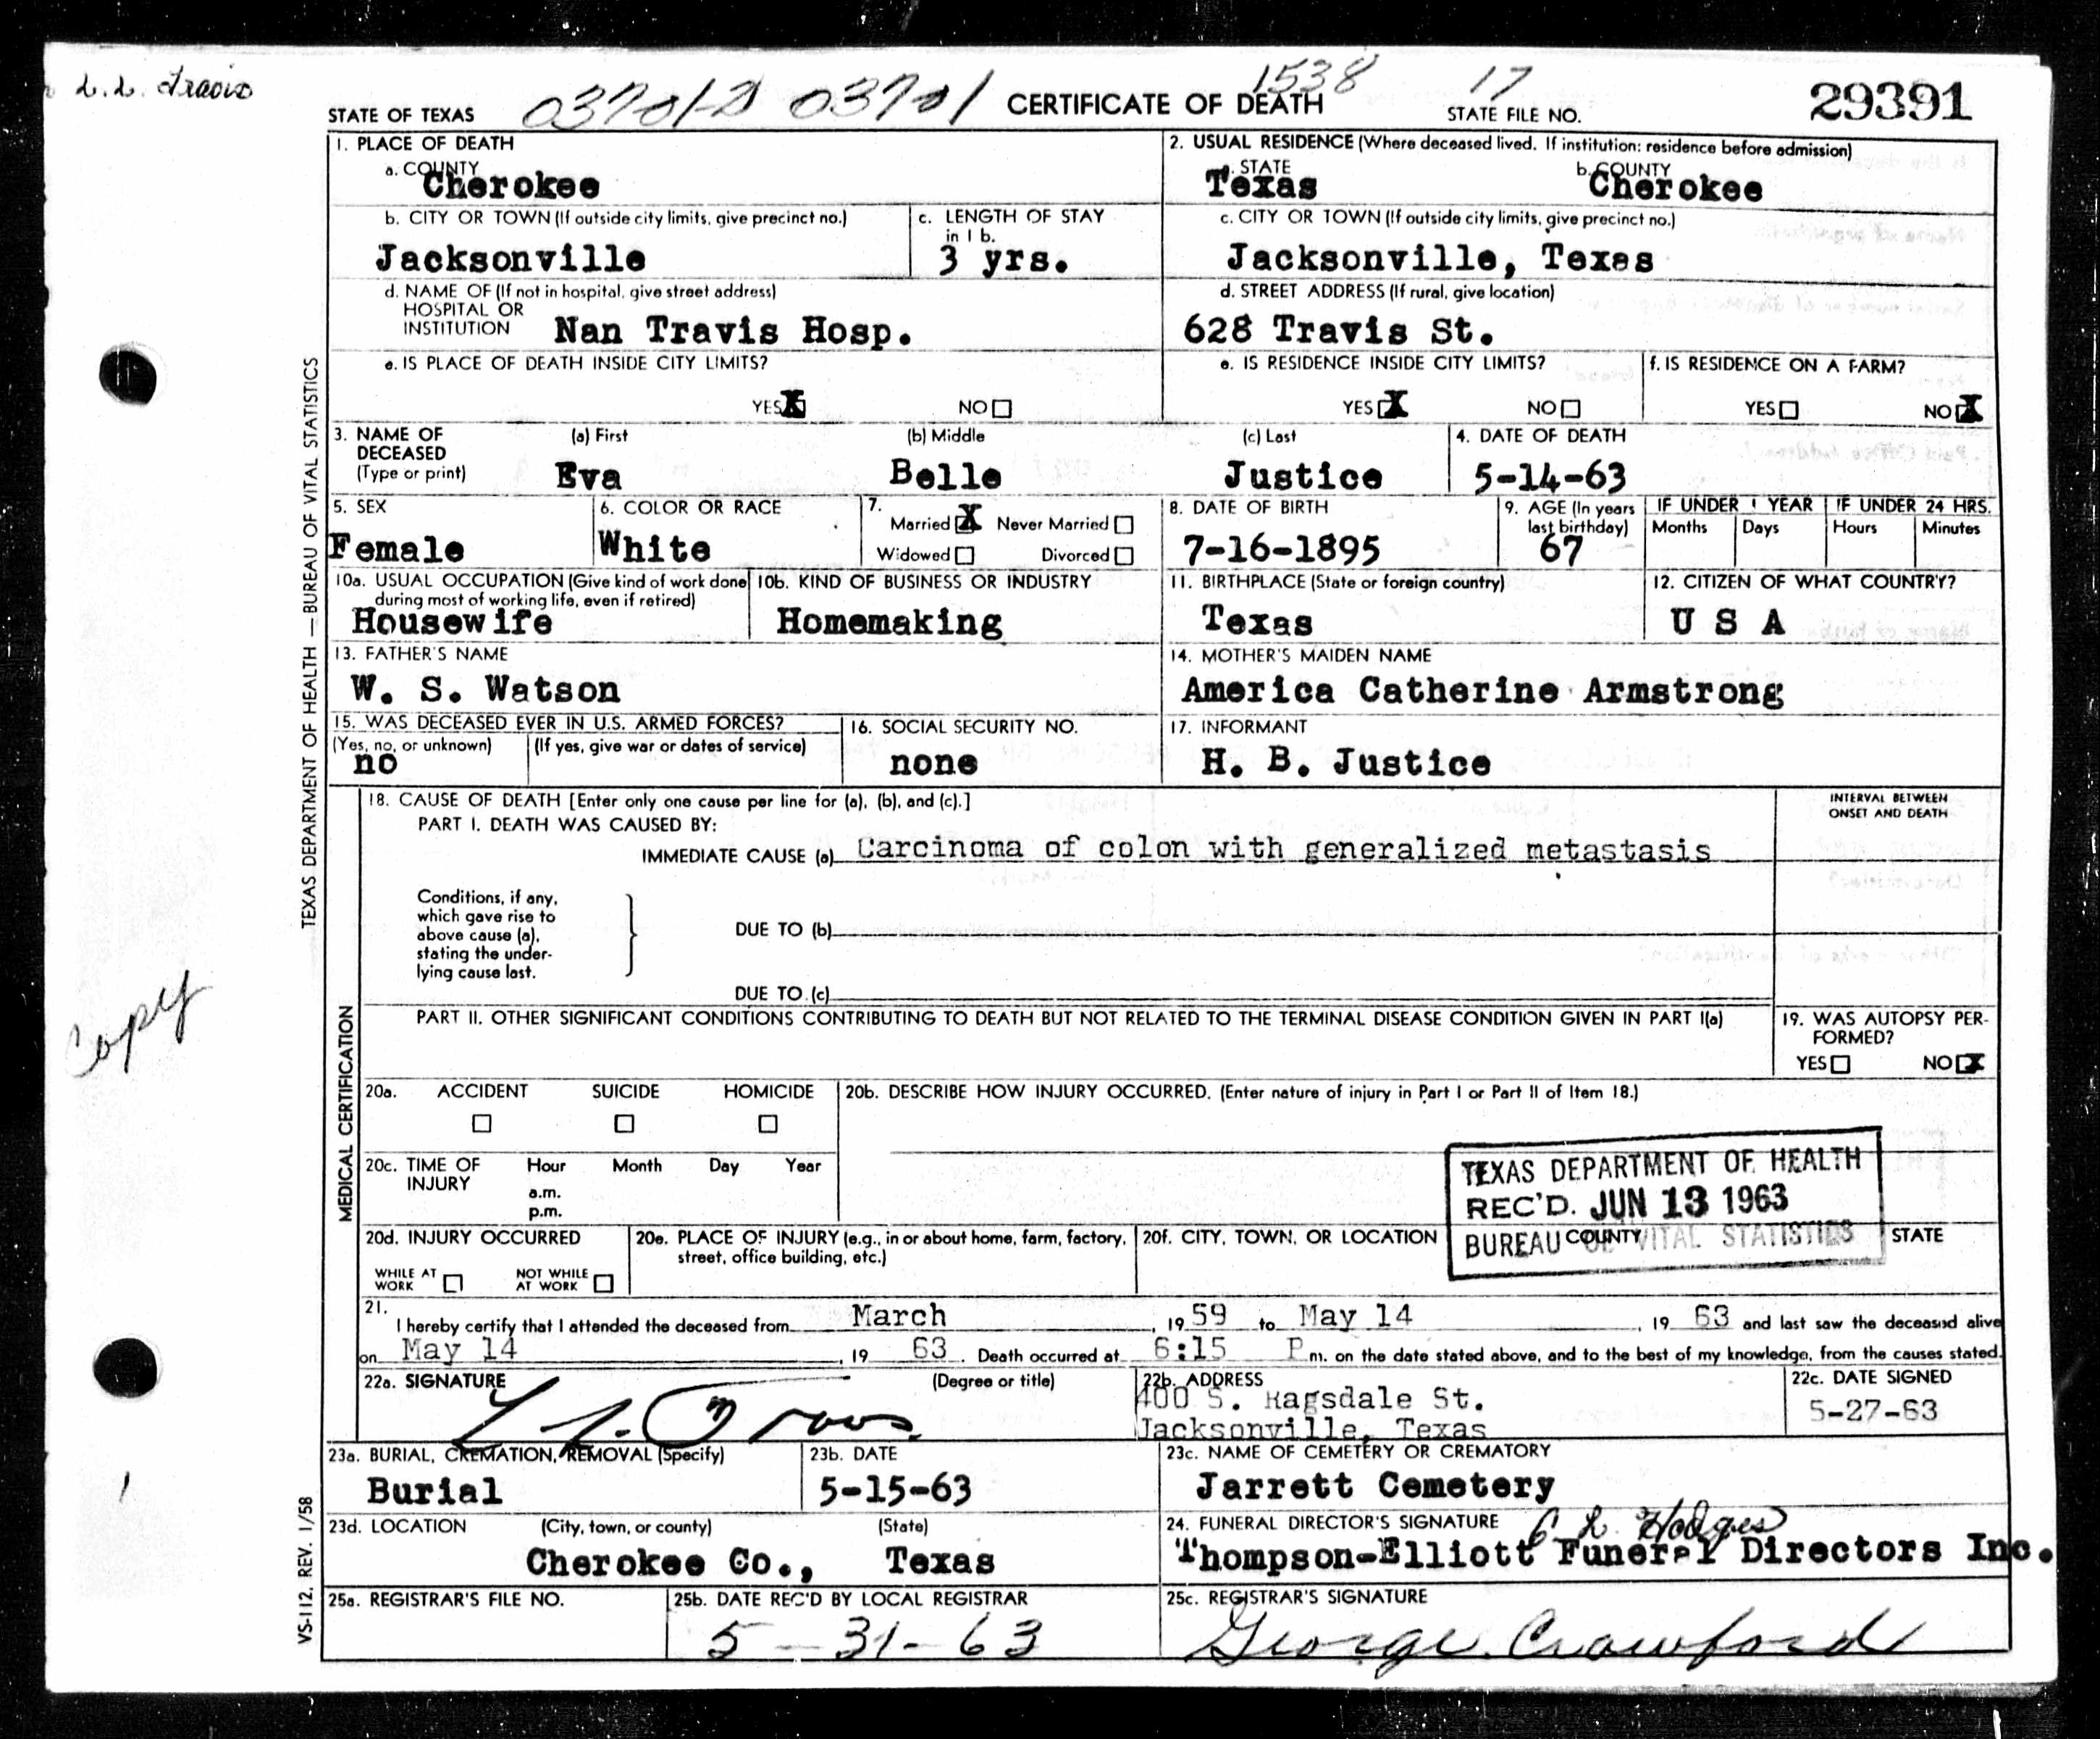 L. L. Travis
STATE OF TEXAS 03701-2 03701 CERTIFICATE OF DEATH 1538 17 STATE FILE NO. 29391
1. PLACE OF DEATH
a. COUNTY
Cherokee
2. USUAL RESIDENCE (Where deceased lived. If institution: residence before admission)
a. STATE b. COUNTY
Texas Cherokee
b. CITY OR TOWN (If outside city limits, give precinct no.)
Jacksonville
c. LENGTH OF STAY
in 1 b.
3 yrs.
c. CITY OR TOWN (If outside city limits, give precinct no.)
Jacksonville, Texas
d. NAME OF (If not in hospital, give street address)
HOSPITAL OR
INSTITUTION Nan Travis Hosp.
d. STREET ADDRESS (If rural, give location)
628 Travis St.
e. IS PLACE OF DEATH INSIDE CITY LIMITS?
YES X NO
e. IS RESIDENCE INSIDE CITY LIMITS?
YES X NO
f. IS RESIDENCE ON A FARM?
YES NO X
3. NAME OF DECEASED
(Type or print)
(a) First (b) Middle (c) Last
Eva Belle Justice
4. DATE OF DEATH
5-14-63
5. SEX
Female
6. COLOR OR RACE
White
7.
Married X Never Married
Widowed Divorced
8. DATE OF BIRTH
7-16-1895
9. AGE (In years
last birthday)
67
IF UNDER 1 YEAR IF UNDER 24 HRS.
Months Days Hours Minutes
10a. USUAL OCCUPATION (Give kind of work done
during most of working life, even if retired)
Housewife
10b. KIND OF BUSINESS OR INDUSTRY
Homemaking
11. BIRTHPLACE (State or foreign country)
Texas
12. CITIZEN OF WHAT COUNTRY?
U S A
13. FATHER'S NAME
W. S. Watson
14. MOTHER'S MAIDEN NAME
America Catherine Armstrong
15. WAS DECEASED EVER IN U.S. ARMED FORCES?
(Yes, no, or unknown) (If yes, give war or dates of service)
no
16. SOCIAL SECURITY NO.
none
17. INFORMANT
H. B. Justice
18. CAUSE OF DEATH [Enter only one cause per line for (a), (b), and (c).]
INTERVAL BETWEEN
ONSET AND DEATH
PART I. DEATH WAS CAUSED BY:
IMMEDIATE CAUSE (a) Carcinoma of colon with generalized metastasis
Conditions, if any,
which gave rise to
above cause (a),
stating the under-
lying cause last.
DUE TO (b)
DUE TO (c)
PART II. OTHER SIGNIFICANT CONDITIONS CONTRIBUTING TO DEATH BUT NOT RELATED TO THE TERMINAL DISEASE CONDITION GIVEN IN PART I(a)
19. WAS AUTOPSY PER-
FORMED?
YES NO X
20a. ACCIDENT SUICIDE HOMICIDE
20b. DESCRIBE HOW INJURY OCCURRED. (Enter nature of injury in Part I or Part II of Item 18.)
20c. TIME OF
INJURY
Hour Month Day Year
a.m.
p.m.
TEXAS DEPARTMENT OF HEALTH
REC'D. JUN 13 1963
BUREAU OF VITAL STATISTICS
20d. INJURY OCCURRED
WHILE AT
WORK
NOT WHILE
AT WORK
20e. PLACE OF INJURY (e.g., in or about home, farm, factory,
street, office building, etc.)
20f. CITY, TOWN, OR LOCATION COUNTY STATE
21.
I hereby certify that I attended the deceased from March, 19 59 to May 14, 19 63 and last saw the deceased alive
on May 14, 19 63. Death occurred at 6:15 P m. on the date stated above, and to the best of my knowledge, from the causes stated.
22a. SIGNATURE (Degree or title)
L L. Travis
22b. ADDRESS
400 S. Ragsdale St.
Jacksonville, Texas
22c. DATE SIGNED
5-27-63
23a. BURIAL, CREMATION, REMOVAL (Specify)
Burial
23b. DATE
5-15-63
23c. NAME OF CEMETERY OR CREMATORY
Jarrett Cemetery
23d. LOCATION (City, town, or county) (State)
Cherokee Co., Texas
24. FUNERAL DIRECTOR'S SIGNATURE C L Hodges
Thompson-Elliott Funeral Directors Inc.
25a. REGISTRAR'S FILE NO.
25b. DATE REC'D BY LOCAL REGISTRAR
5-31-63
25c. REGISTRAR'S SIGNATURE
George Crawford
TEXAS DEPARTMENT OF HEALTH — BUREAU OF VITAL STATISTICS
MEDICAL CERTIFICATION
VS-112. REV. 1/58
Copy